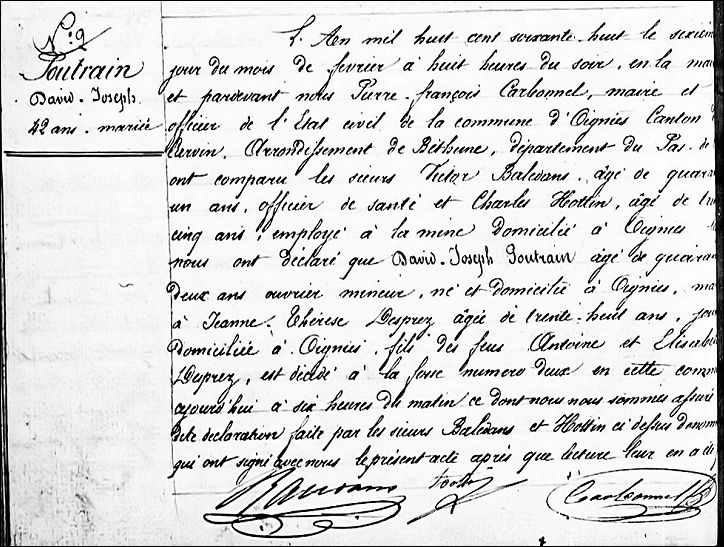 N.º 9
Poutrain
David-Joseph
42 ans. mariée
L'An mil huit cent soixante-huit le sixième
jour du mois de fevrier à huit heures du soir, en la mai
et pardevant nous Pierre-françois Carbonnel, maire et
officier de l'Etat civil de la commune d'Oignies Canton
Carvin, Arrondissement de Béthune, département du Pas-de
ont comparu les sieurs Victor Baledans, âgé de quaran
un ans, officier de santé et Charles Hottin, âgé de tren
cinq ans, employé à la mine domicilié à Oignies
nous ont déclaré que David-Joseph Poutrain âgé de quaran
deux ans ouvrier mineur, né et domicilié à Oignies, ma
à Jeanne-Thérèse Desprez âgée de trente-huit ans, jour
domiciliée à Oignies, fils des feus Antoine et Elisabe
Desprez, est décédé à la fosse numero deux en cette comm
aujourd'hui à six heures du matin ce dont nous nous sommes assuré
dete declaration faite par les sieurs Baledans et Hottin ci dessus dénomm
qui ont signé avec nous le présent acte après que lecture leur en a été
Baledans Hottin Carbonnel